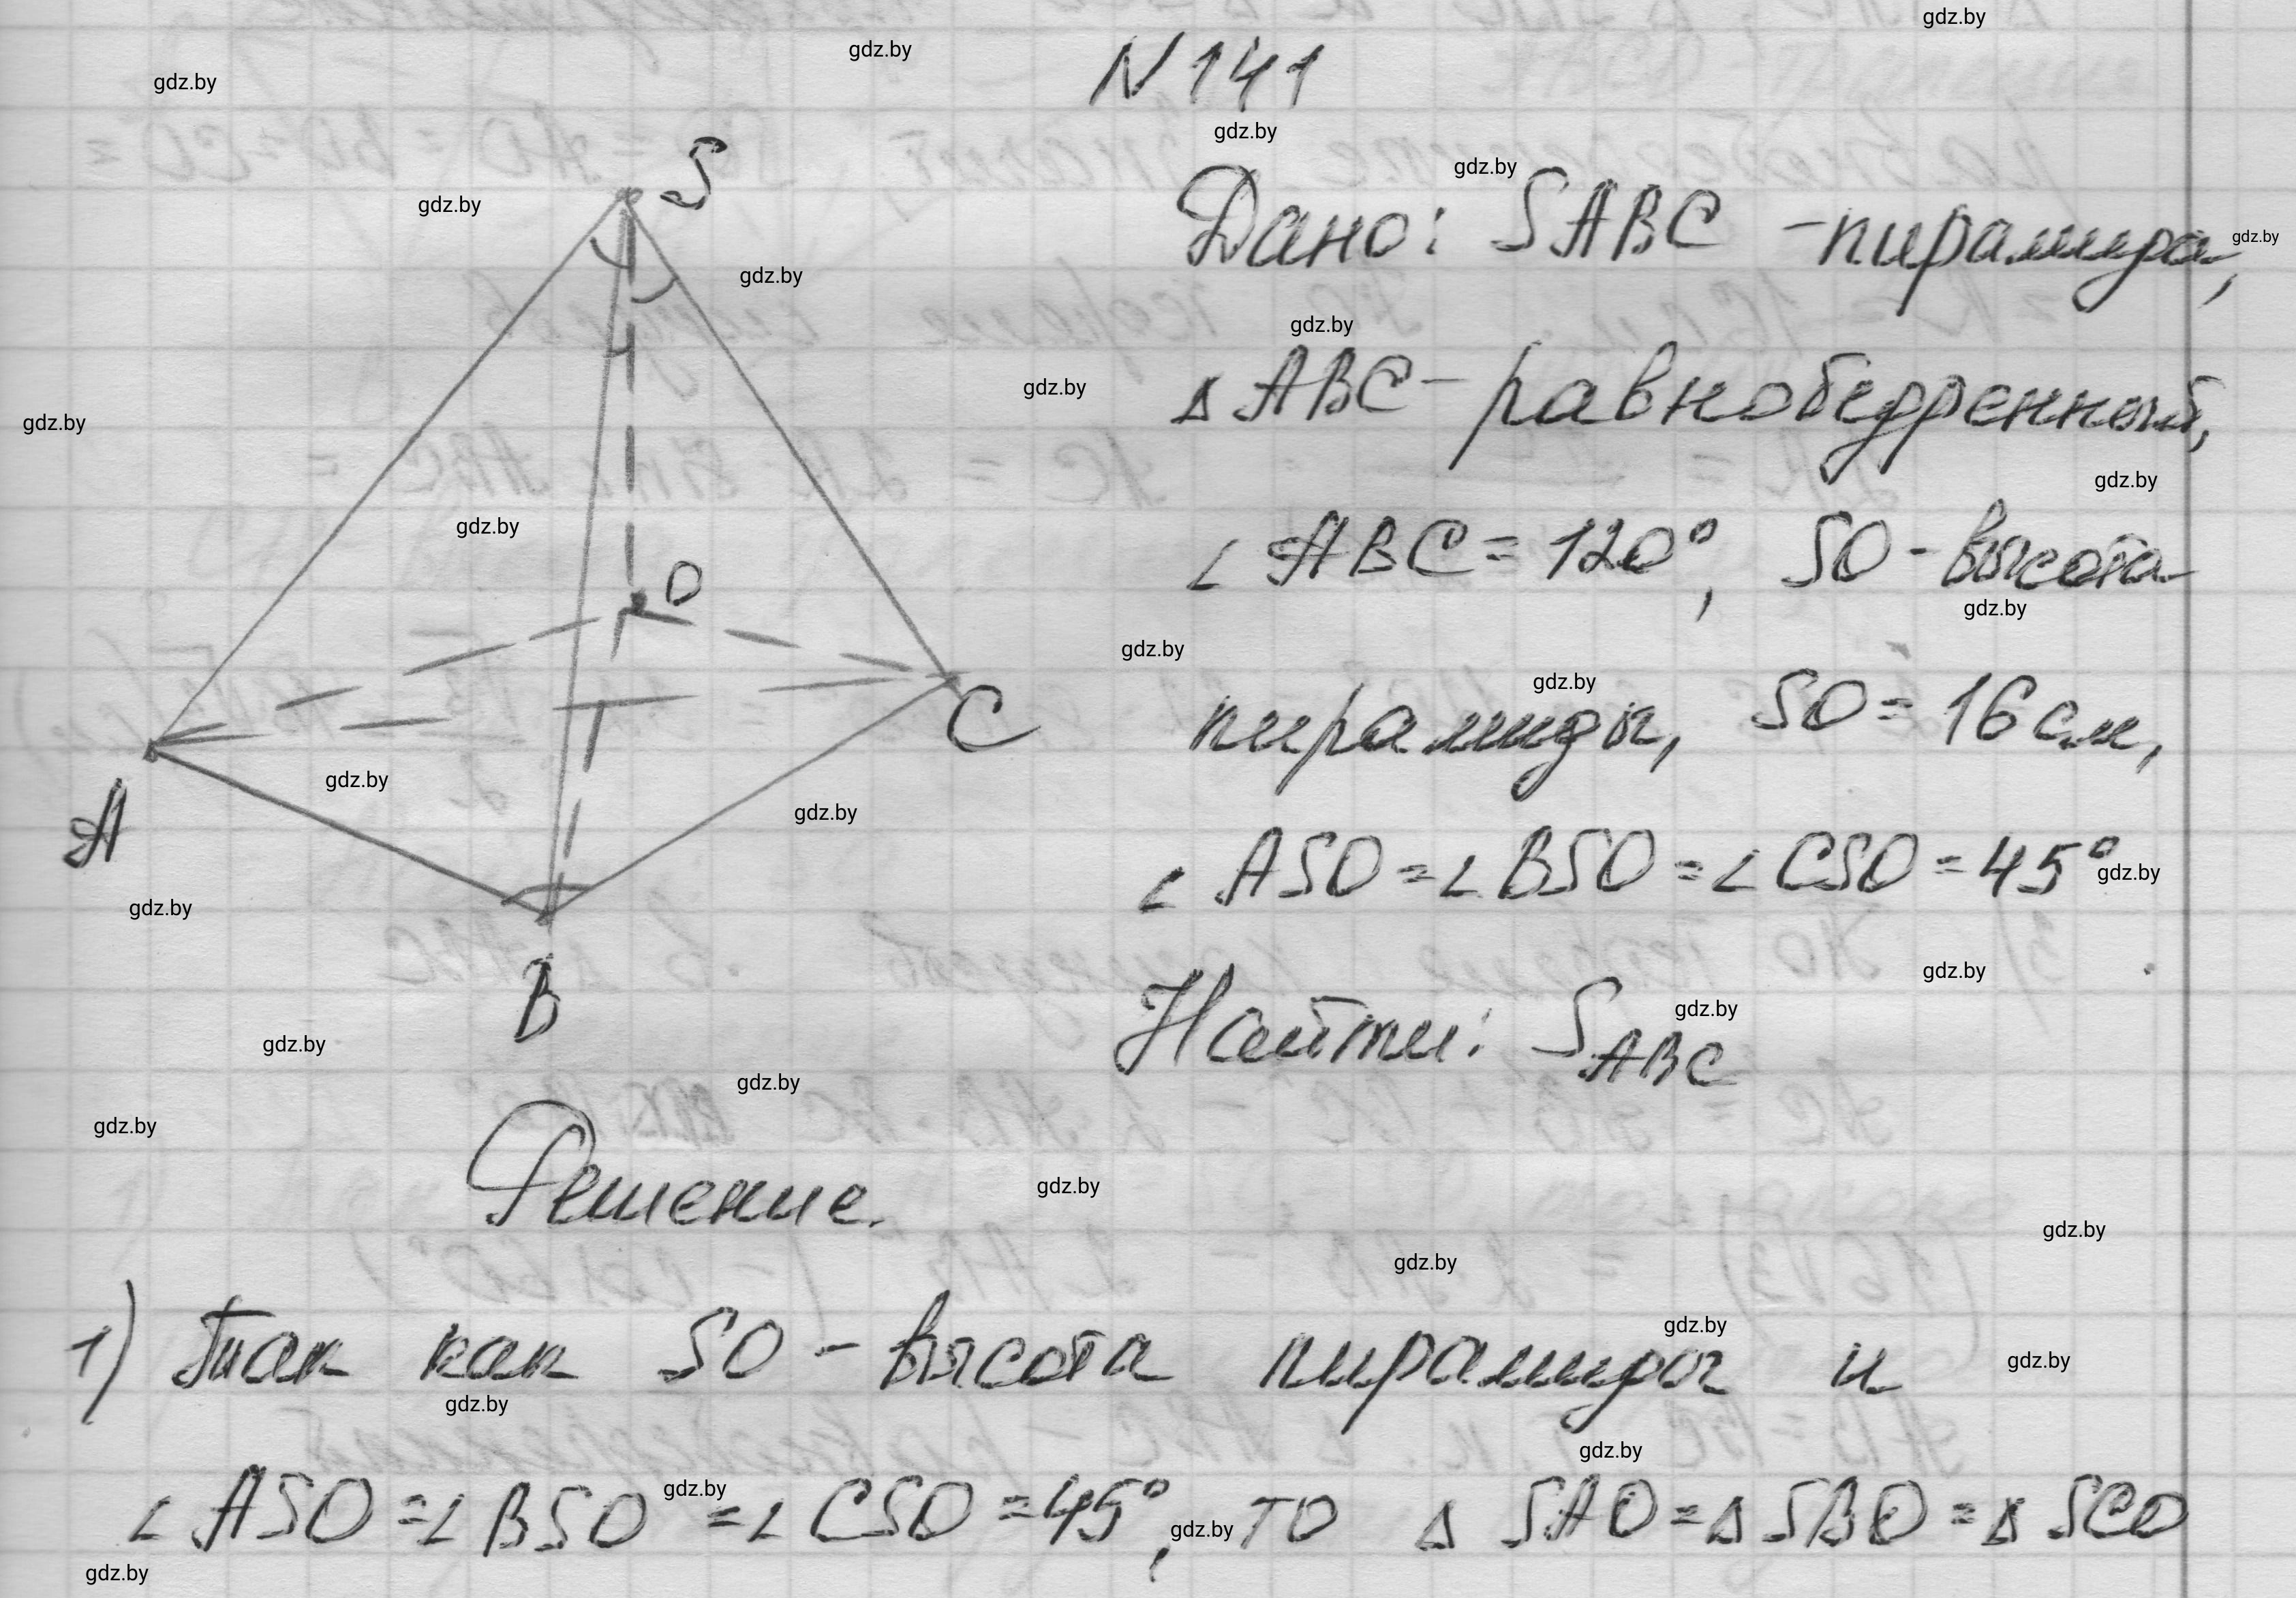 N 141
S
Дано: SABC - пирамида,
Δ ABC - равнобедренный,
∠ ABC = 120°, SO - высота
O
пирамиды, SO = 16 см,
C
A
∠ ASO = ∠ BSO = ∠ CSO = 45°
B
Найти: S_ABC
Решение.
1) Так как SO - высота пирамиды и
∠ ASO = ∠ BSO = ∠ CSO = 45°, то Δ SAO = Δ SBO = Δ SCO
gdz.by